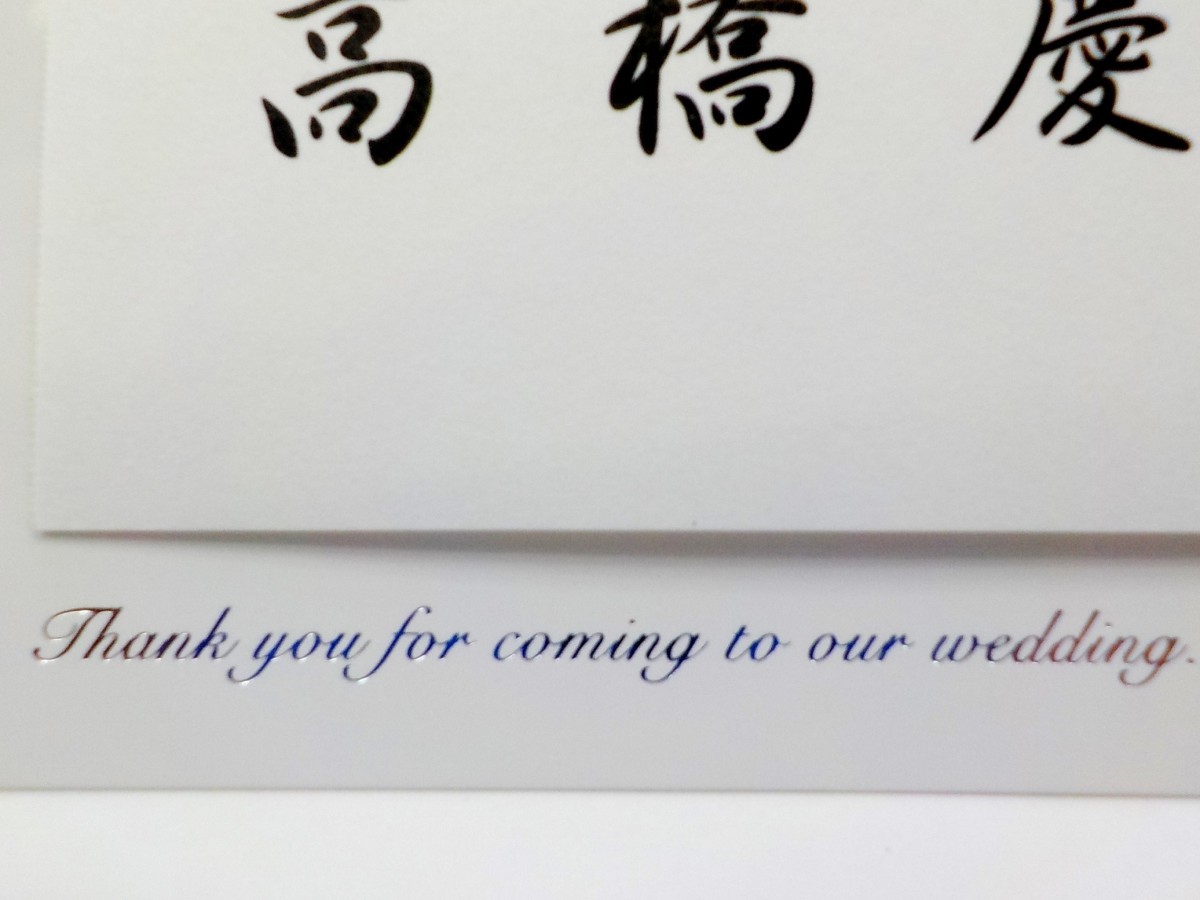 高橋慶
Thank you for coming to our wedding.